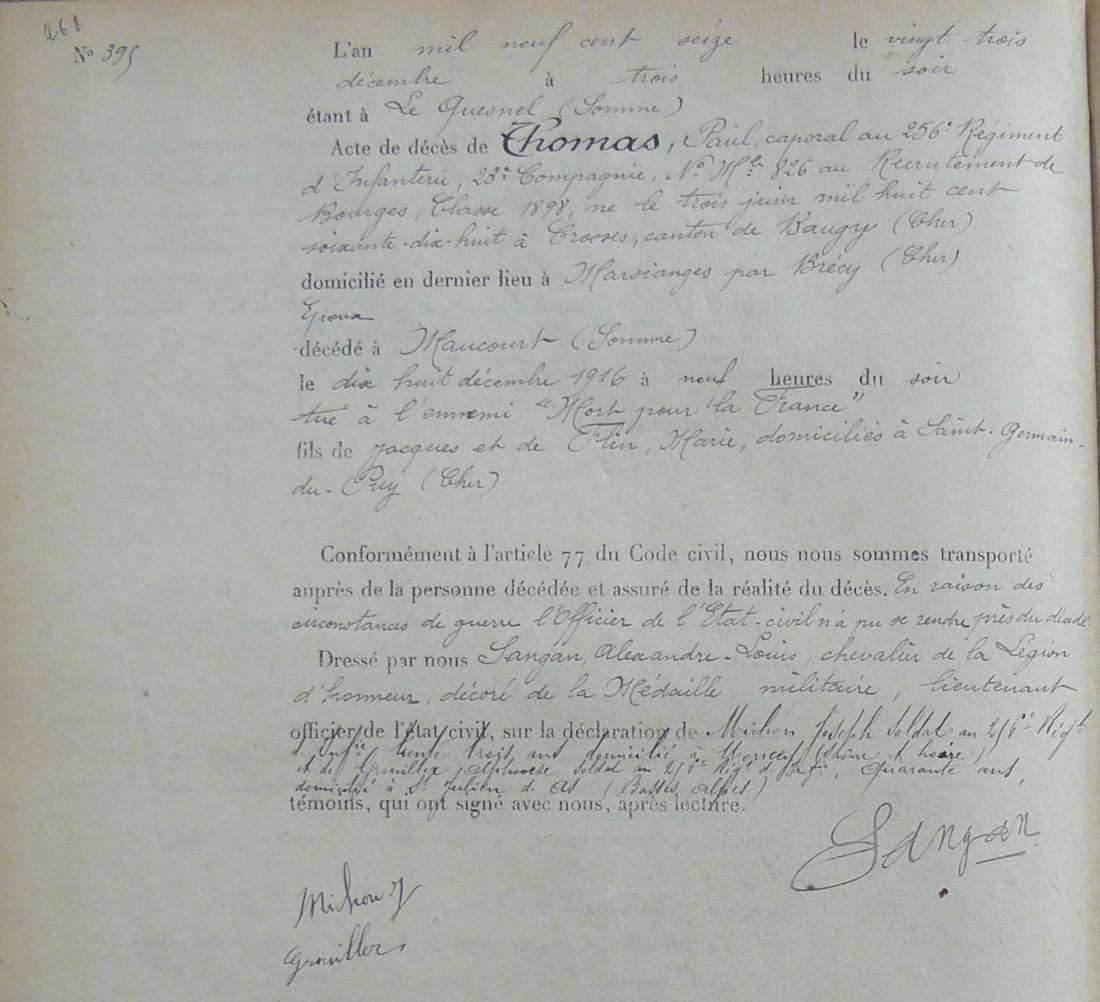 268
No 395
L'an mil neuf cent seize le vingt trois
décembre à trois heures du soir
étant à Le Quesnel (Somme)
Acte de décès de Thomas, Paul, caporal au 256e Régiment
d'Infanterie, 23e Compagnie, No Mle 826 au Recrutement de
Bourges, Classe 1898, né le trois juin mil huit cent
soixante-dix-huit à Crosses, canton de Baugy (Cher)
domicilié en dernier lieu à Marsianges par Brécy (Cher)
Epoux
décédé à Maucourt (Somme)
le dix huit décembre 1916 à neuf heures du soir
tué à l'ennemi "Mort pour la France"
fils de Jacques et de Flin, Marie, domiciliés à Saint-Germain-
du-Puy (Cher)
Conformément à l'article 77 du Code civil, nous nous sommes transporté
auprès de la personne décédée et assuré de la réalité du décès. En raison des
circonstances de guerre l'Officier de l'Etat-civil n'a pu se rendre près du décédé
Dressé par nous Sangan, Alexandre-Louis, chevalier de la Légion
d'honneur, décoré de la Médaille militaire, lieutenant
officier de l'état civil, sur la déclaration de Michon Joseph Soldat au 256e Régt
d'Infie trente trois ans domicilié à (Saône et Loire)
et de Alphonse Soldat au 256e Régt d'Infie, Quarante ans,
domicilié à St Julien d'As (Basses Alpes)
témoins, qui ont signé avec nous, après lecture.
Sangan
Michon J
Grouiller